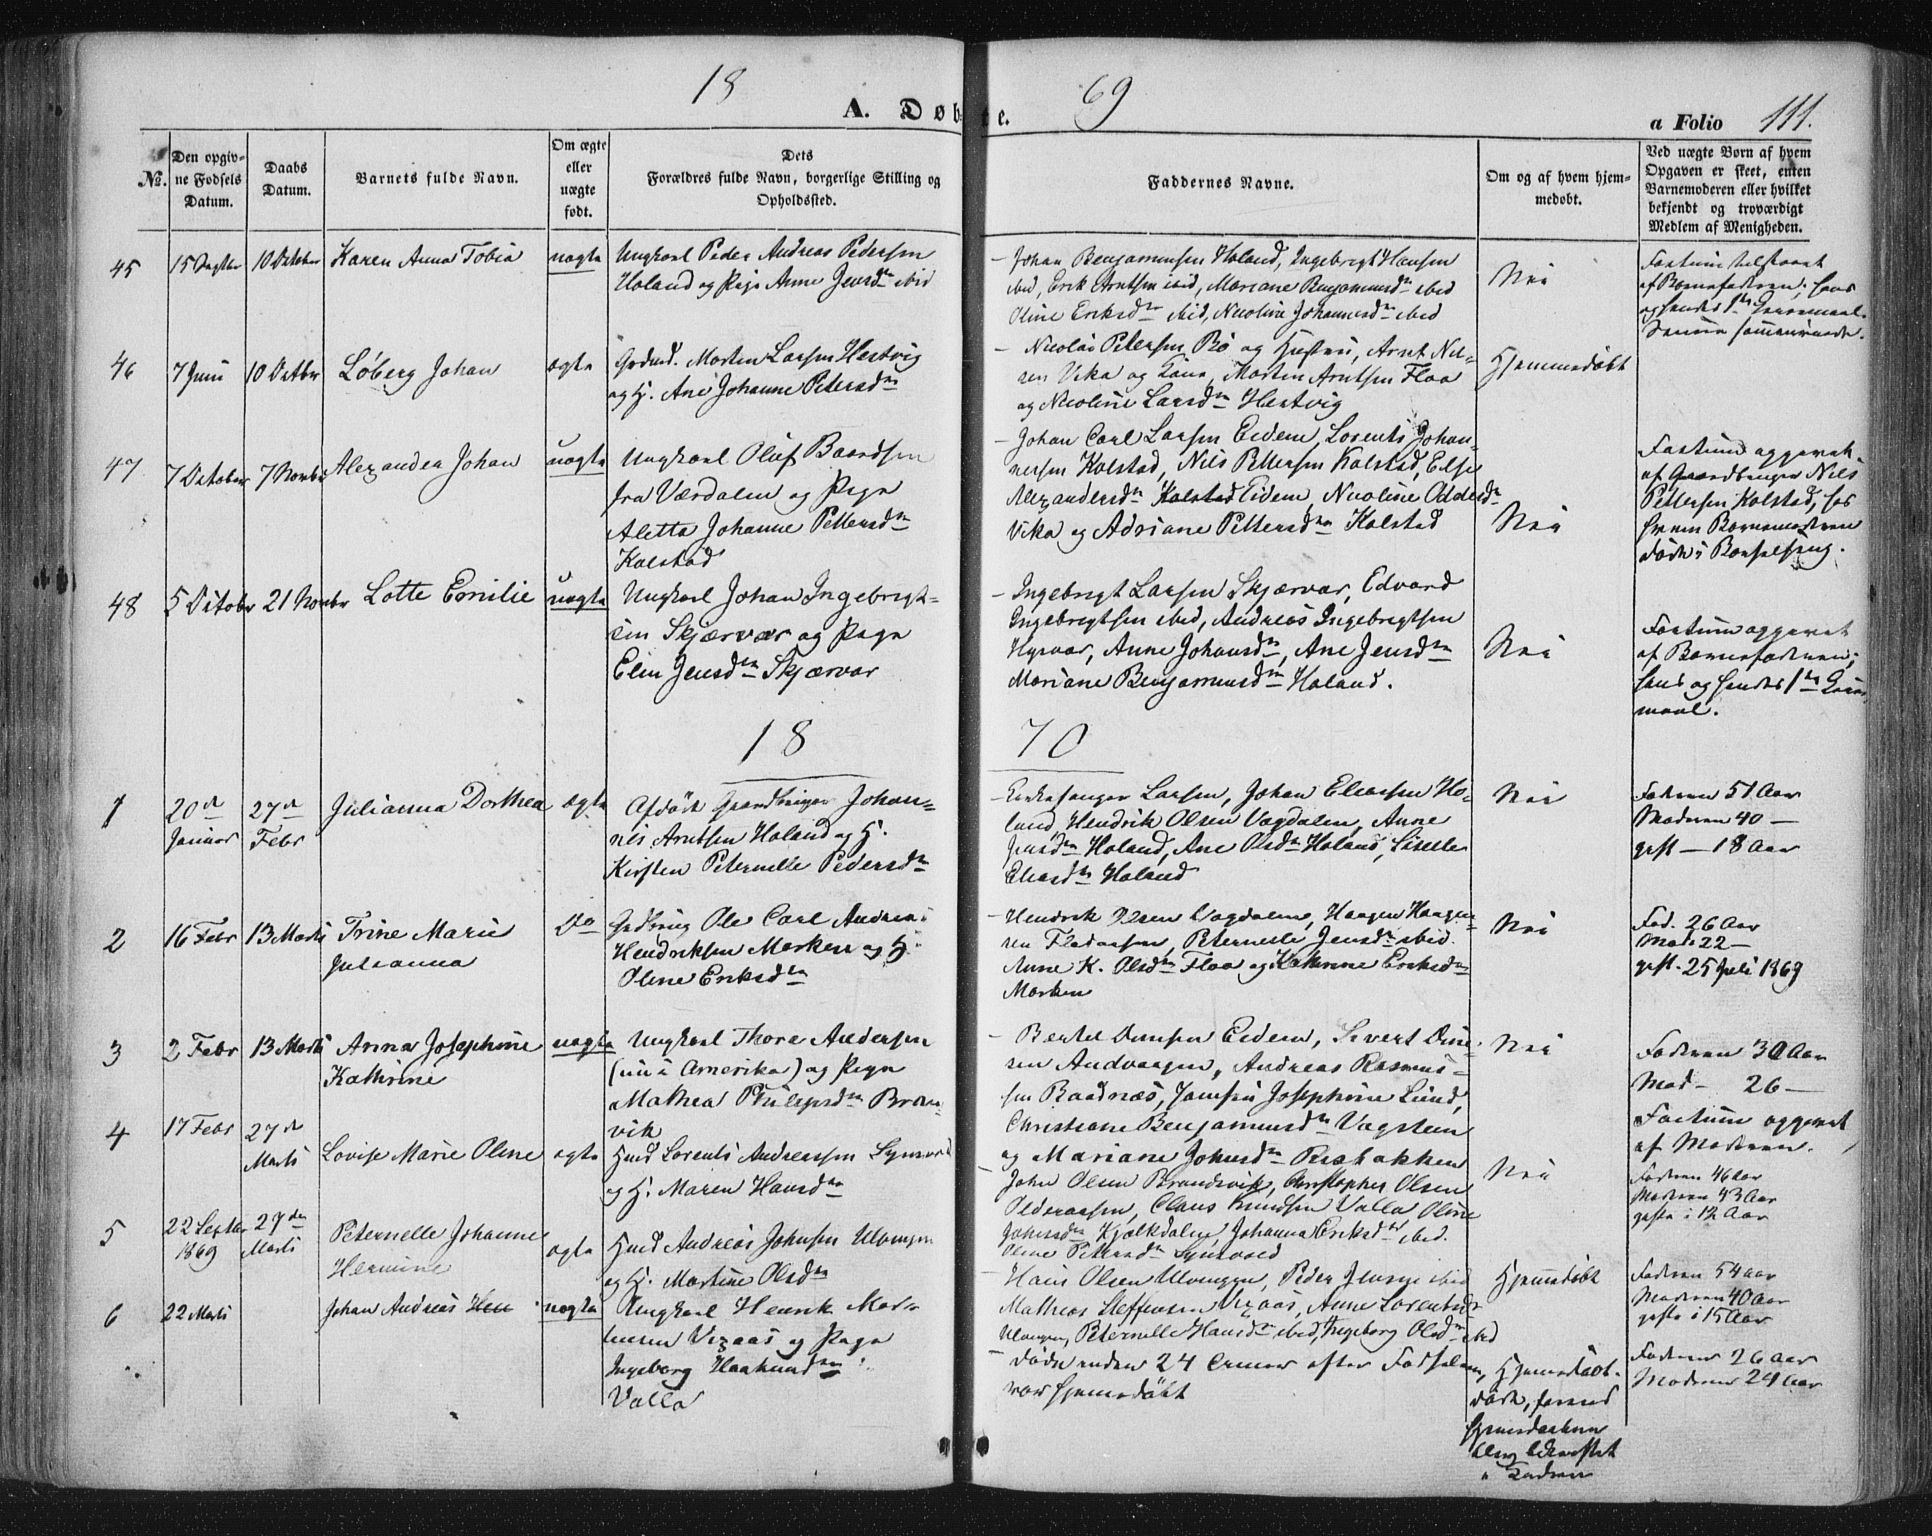 18 69
A. Døbte.
a Folio 111.
№.
Den opgivne Fødsels Datum.
Daabs Datum.
Barnets fulde Navn.
Om ægte eller uægte født.
Dets Forældres fulde Navn, borgerlige Stilling og Opholdssted.
Faddernes Navne.
Om og af hvem hjemmedøbt.
Ved uægte Børn af hvem Opgaven er skeet, enten Barnemoderen eller hvilket bekjendt og troværdigt Medlem af Menigheden.
45 15 Septbr 10 October Karen Anna Tobia uægte
Ungkarl Peder Andreas Pedersen
Holand og Pige Anne Jensdtr ibid
Johan Benjaminsen Holand, Ingebrigt Hansen
ibid, Erik Arntsen ibid, Mariane Benjaminsdtr ibid
Oline Eriksdtr ibid, Nicoline Johannesdtr ibid
Nei
af Barnefaderen, hans
46 7 Juni 10 Octbr Løberg Johan ægte
Grdmd. Morten Larsen Hestvig
og H. Ane Johanne Petersdtr
Nicolai Petersen Bø og Hustru, Arnt Nilsen
Vika og Kone, Morten Arntsen Floa
og Nicoline Larsdtr Hestvig
Hjemmedøbt
47 7 October 7 Novbr Alexander Johan uægte
Ungkarl Oluf Baardsen
fra Værdalen og Pige
Aletta Johanne Pettersdtr
Kolstad
Johan Carl Larsen Eidem, Lorents Johannesen
Kolstad, Nils Pettersen Kolstad, Else
Alexandersdtr Kolstad Eidem, Nicoline Oddesdtr
Vika og Adriane Pettersdtr Kolstad
Nei
Factum opgivet
af Gaardbruger Nils
Pettersen Kolstad, hos
hvem Barnemoderen
døde i Barselseng.
48 5 October 21 Novbr Lotte Emilie uægte
Ungkarl Johan Ingebrigtsen
Skjærvær og Pige
Elen Jensdtr Skjærvær
Ingebrigt Larsen Skjærvær, Edvard
Ingebrigtsen ibid, Andreas Ingebrigtsen
Hysvær, Anne Johansdtr, Ane Jensdtr
Mariane Benjaminsdtr Holand.
Nei
Factum opgivet
af Barnefaderen;
hans og hendes 1ste Leiermaal.
18 70
1 20de Januar 27de Febr Julianna Dorthea ægte
Afdøde Gaardbruger Johannes
Arntsen Holand og H.
Kirsten Peternelle Pedersdtr
Kirkesanger Larsen, Johan Eliassen Holand,
Hendrik Olsen Vægdalen, Anne
Jensdtr Holand, Ane Olsdtr Holand, Liselle
Eliasdtr Holand
Nei
Faderen 51 Aar
Moderen 40 —
gift — 18 Aar
2 16 Febr 13 Marts Trine Marie
Julianna
Do
Grdbrug Ole Carl Andreas
Hendriksen Marken og H.
Oline Eriksdtr
Hendrik Olsen Vægdalen, Haagen Haagensen
Flodaasen, Peternelle Jensdtr ibid.
Anne K. Olsdtr Floa og Kathrine Eriksdtr
Marken
Nei
Fad. 26 Aar
Mod. 22 —
gift. 25 Juli 1869
3 2 Febr 13 Marts Anna Josephine
Kathrine
uægte
Ungkarl Thore Andersen
(nu i Amerika) og Pige
Mathea Philipsdtr Brændvik
Bertel Dinesen Eidem, Sivert Dinesen
Andvaagen, Andreas Rasmussen
Baadnæs, Jomfru Josephine Lund,
Christiane Benjaminsdtr Vægstein
og Mariane Johnsdtr Præstøkken
Nei
Faderen 30 Aar
Mod — 26 —
Factum opgivet
af Moderen.
4 17 Febr 27de Marts Lovise Marie Oline ægte
Hmd Lorents Andreassen Synsvold
og H. Maren Hansdtr
John Olsen Brændsvik, Christopher Olsen
Olderaasen, Claus Knudsen Valla Oline
Johnsdtr Kjelkdalen, Johanna Eriksdtr ibid.
Oline Pettersdtr Synsvold
Nei
Faderen 46 Aar
Moderen 43 Aar
gifte i 12 Aar
5 22 Septbr 1869 27de Marts Peternelle Johanne
Hermine
ægte
Hmd Andreas Johnsen Ulvingen
og H. Martine Olsdtr
Hans Olsen Ulvingen, Peder Jensen ibid
Mathias Steffensen Vixaas, Anne Lorentsdtr
Ulvingen, Peternelle Hansdtr ibid, Ingeborg Olsdtr ibid
Hjemmedøbt
Faderen 54 Aar
Moderen 40 Aar
gifte i 15 Aar
6 22 Marts Johan Andreas uægte
Ungkarl Henrik Mortensen
Vixaas og Pige
Ingeborg Haakunsdtr
Valla
Døde inden 24 Timer efter Fødselen,
var hjemmedøbt
Hjemmedøbt.
Faderen 26 Aar
Moderen 24 Aar